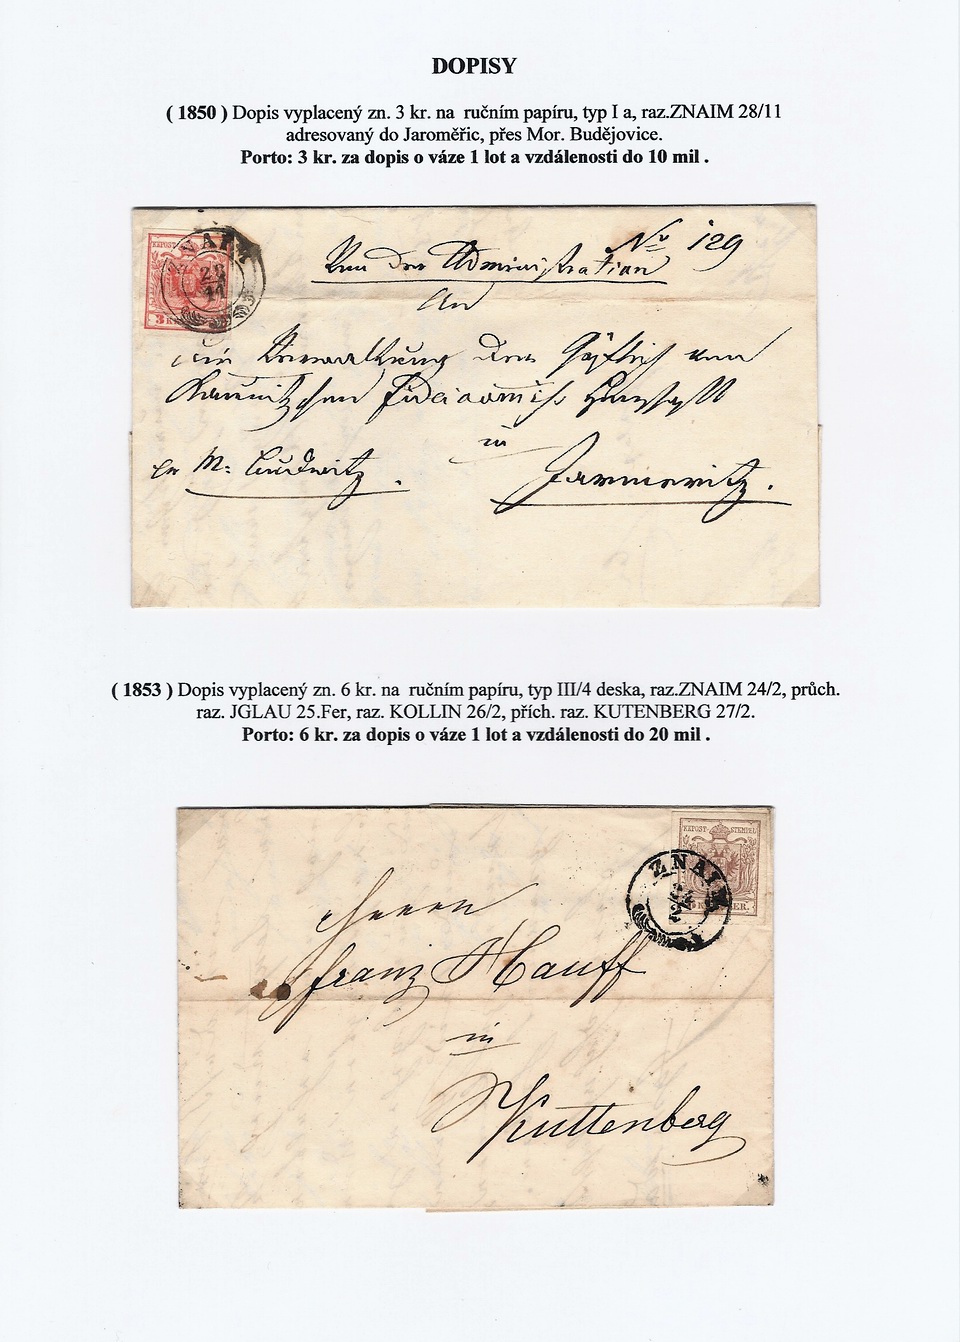 DOPISY
( 1850 ) Dopis vyplacený zn. 3 kr. na ručním papíru, typ I a, raz.ZNAIM 28/11
adresovaný do Jaroměřic, přes Mor. Budějovice.
Porto: 3 kr. za dopis o váze 1 lot a vzdálenosti do 10 mil .
ZNAIM
28
11
3 K
No 129
Von der Administration
An
die Verwaltung der Gräflich von
Kaunitzschen Fideicomiss Herrschaft
in
pr M: Budwitz.
Jarmeritz.
( 1853 ) Dopis vyplacený zn. 6 kr. na ručním papíru, typ III/4 deska, raz.ZNAIM 24/2, průch.
raz. JGLAU 25.Fer, raz. KOLLIN 26/2, přích. raz. KUTENBERG 27/2.
Porto: 6 kr. za dopis o váze 1 lot a vzdálenosti do 20 mil .
KKPOST-STEMPEL
ZNAIM
Herrn
Franz Hauff
in
Kuttenberg